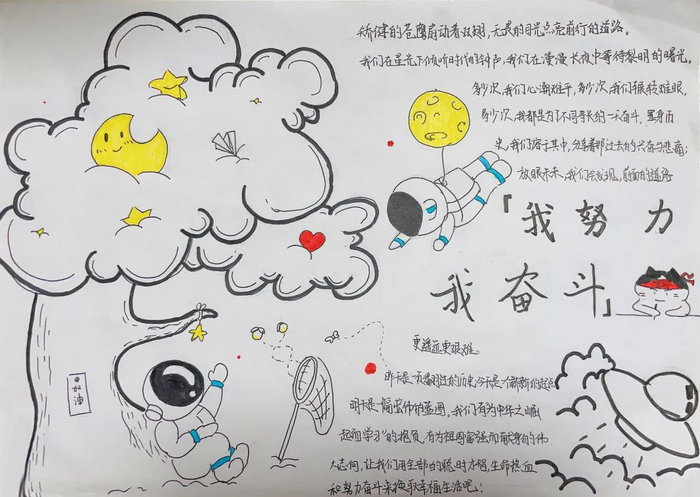 矫健的苍鹰扇动着双翅，无畏的目光点亮前行的道路。
我们在星光下倾听时代的钟声，我们在漫漫长夜中等待黎明的曙光。
多少次，我们心潮难平，多少次我们辗转难眠，
多少次，我都是为了不同寻长的一次奋斗，置身历
史，我们溶于其中，勾著那过去的兴奋与悲痛；
放眼未来，我们会发现，前面的道路
「我努力
我奋斗」
更遥远更艰难。
昨天是一页翻过的历史，今天是个崭新的起点
明天是一幅宏伟的蓝图，我们有为中华之崛
起而学习"的抱负，有为祖国富强而献身的伟
大志向，让我们用全部的聪明才智，生命热血
和努力奋斗来换取幸福生活吧！
加油